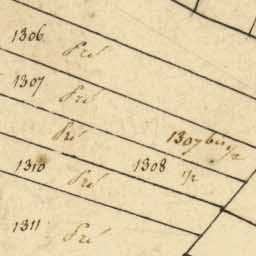 1306
Pré
1307
Pré
Pré
1307 bis
1/2
1310
Pré
1308
1/2
1311
Pré